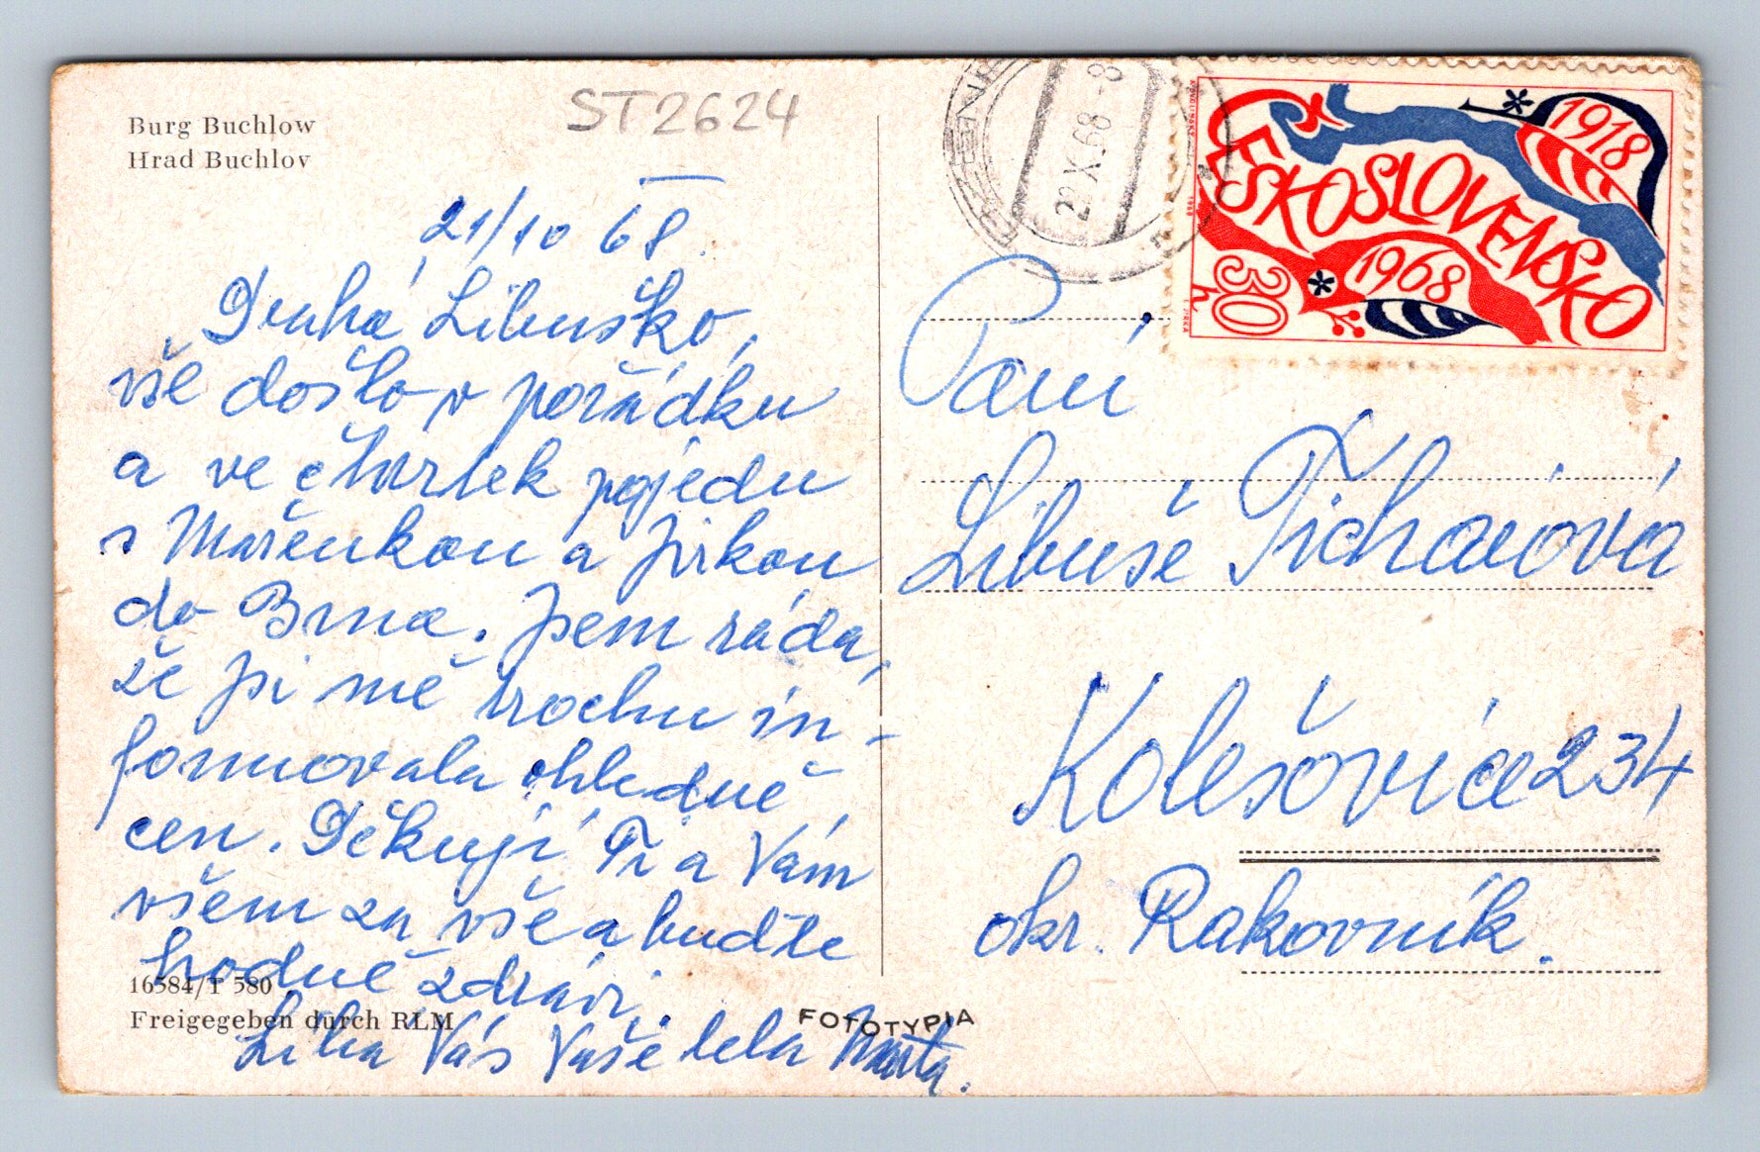 Burg Buchlow
Hrad Buchlov
ST2624
21/10 68.
Drahá Libuško,
vše došlo v pořádku
a ve čtvrtek pojedu
s Mařenkou a Jirkou
do Brna. Jsem ráda,
že jsi mě trochu in-
formovala ohledně
cen. Děkuji Ti a Vám
všem za vše a buďte
hodně zdrávi.
Líbá Vás Vaše teta Marta.
16584/T 580
Freigegeben durch RLM
FOTOTYPIA
22.X.68-8
ČESKOSLOVENSKO
1918
1968
30 h
Paní
Libuše
Kolešovice 234
okr. Rakovník.